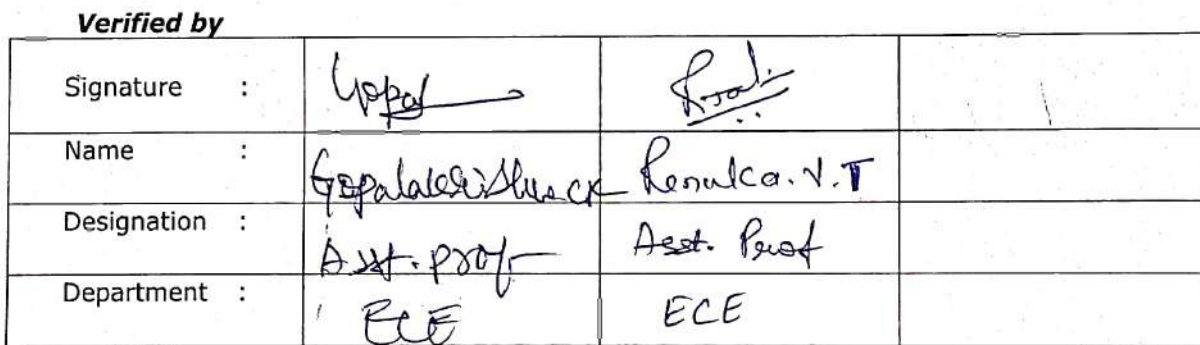 Verified by
Signature : Gopal
Name : Gopalakrishna CK Renuka. V. T
Designation : Asst. prof Asst. Prof
Department : ECE ECE